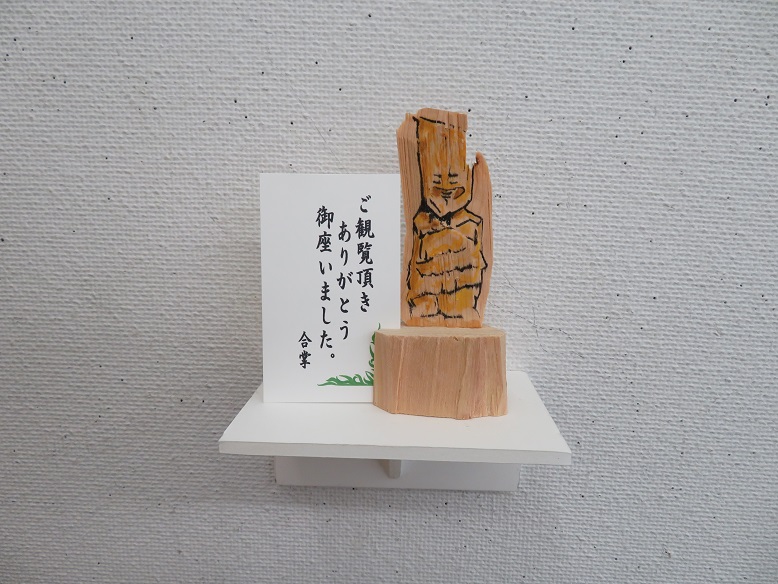 ご観覧頂き
ありがとう
御座いました。
合掌